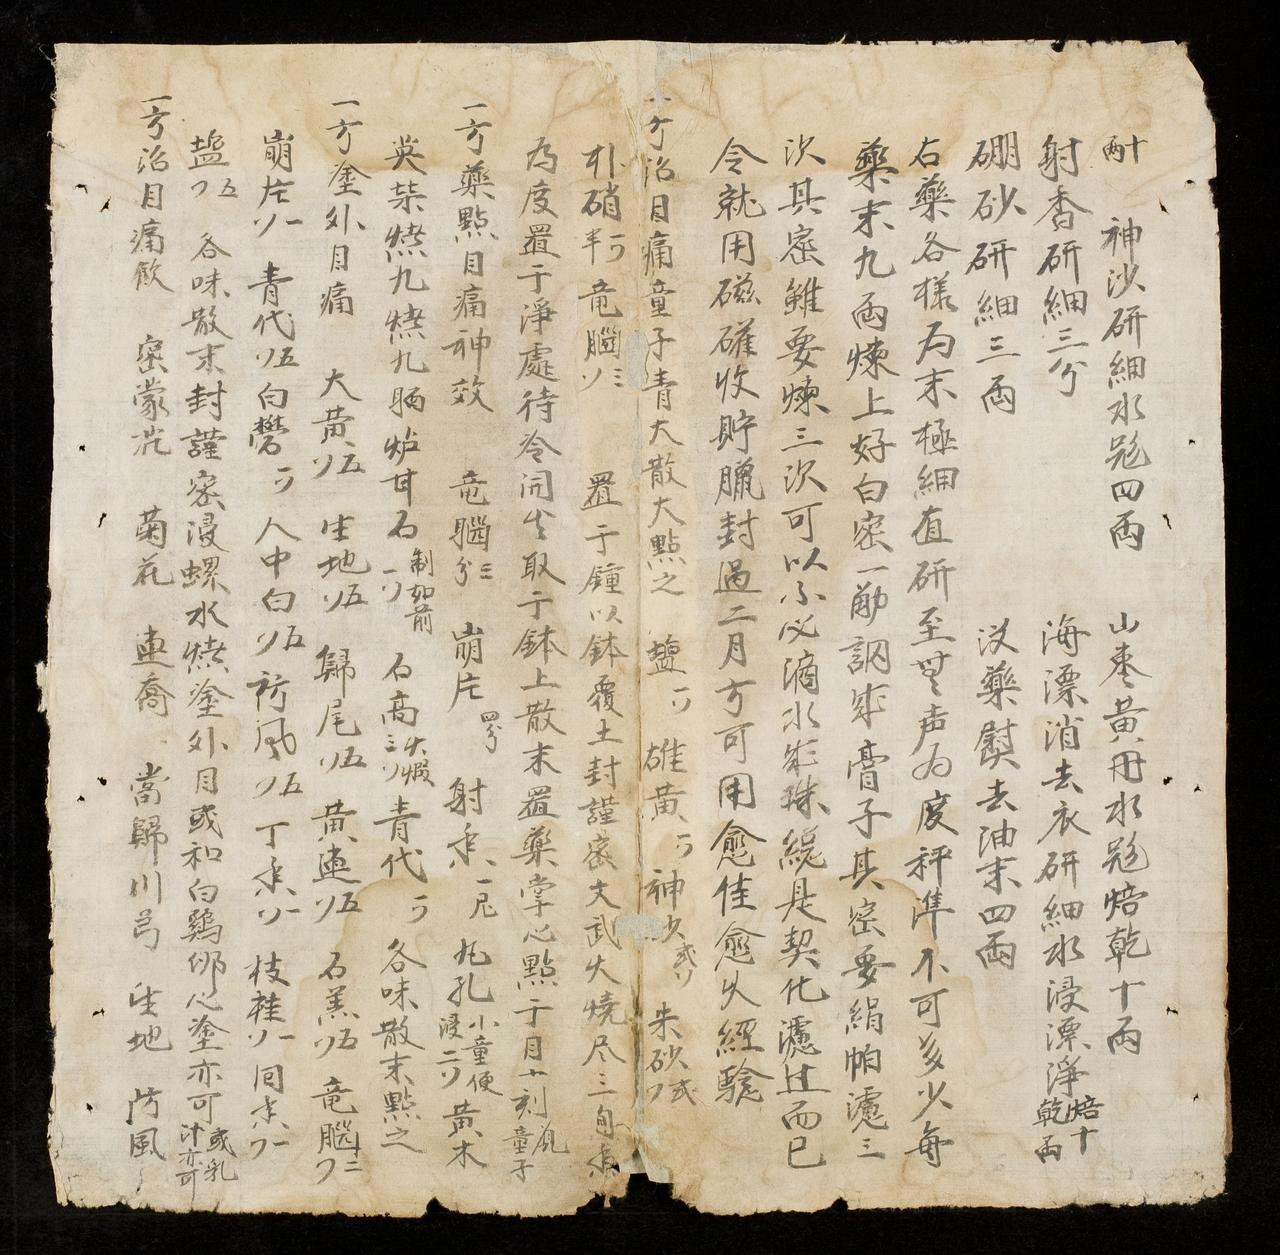 十両　神沙研細水飛四両　山棗黄丹水飛焙乾十両
射香研細三分　海漂消去衣研細水浸漂淨焙乾十両
硼砂研細三両　没藥熨去油末四両
右藥各樣为末極細直研至無声为度秤準不可多少每
藥末九両煉上好白密一觔調成膏子其密要絹帕濾三
次其密雖要煉三次可以不必滴水成珠緃是契化濾过而已
令就用磁礶收貯臘封過二月方可用愈佳愈久經驗
一方治目痛童子青大散大點之　塩一ク　雄黄一ク　神沙弍ソ　朱砂弍ク
朴硝半ク　竜腦三ソ　置于鐘以鉢覆土封謹密文武火燒尽三旬香
為度置于淨處待冷開出取于鉢上散末置藥掌心點于目十刻童子
一方藥點目痛神效　竜腦三分　崩片四分　射香一凡　炉孔小童便浸二ク　黄木
英柴燒九燒九晒炉甘石一ク制如前　石高火煆三ク　青代一ク　各味散末點之
一方塗外目痛　大黄五ソ　生地五ソ　歸尾五ソ　黄連五ソ　石羔五ソ　竜腦十三ク
崩片一ソ　青代五ソ　白礬一ク　人中白五ソ　防風五ソ　丁香一ソ　枝桂一ソ　同香一ク
塩五ク　各味散末封謹密浸螺水燒塗外目或和白鷄卵心塗亦可或乳汁亦可
一方治目痛飲　密蒙花　菊花　連喬　當歸　川芎　生地　防風